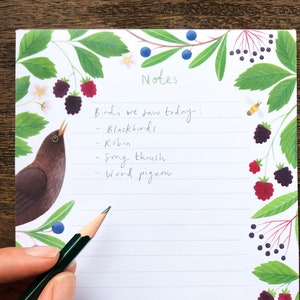 Notes
Birds we saw today:
- Blackbirds
- Robin
- Song thrush
- Wood pigeon